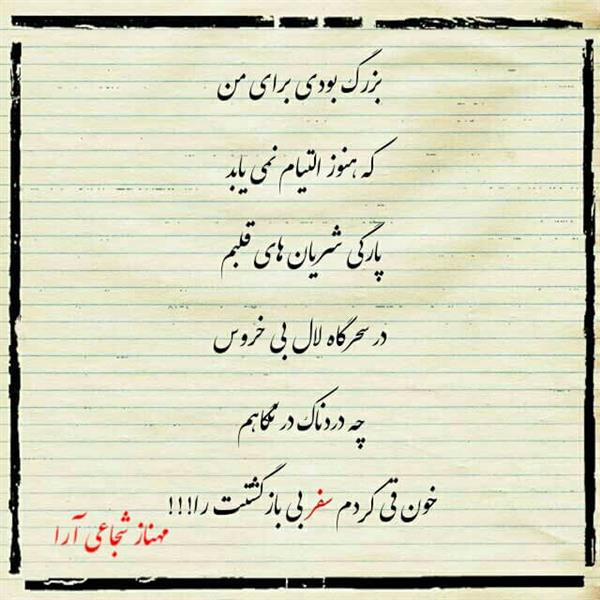 بزرگ بودی برای من
که هنوز التیام نمی یابد
پارگی شریان های قلبم
در سحرگاه لال بی خروس
چه دردناک در نگاهم
خون قی کردم سفر بی بازگشتت را!!!
مهناز شجاعی آرا